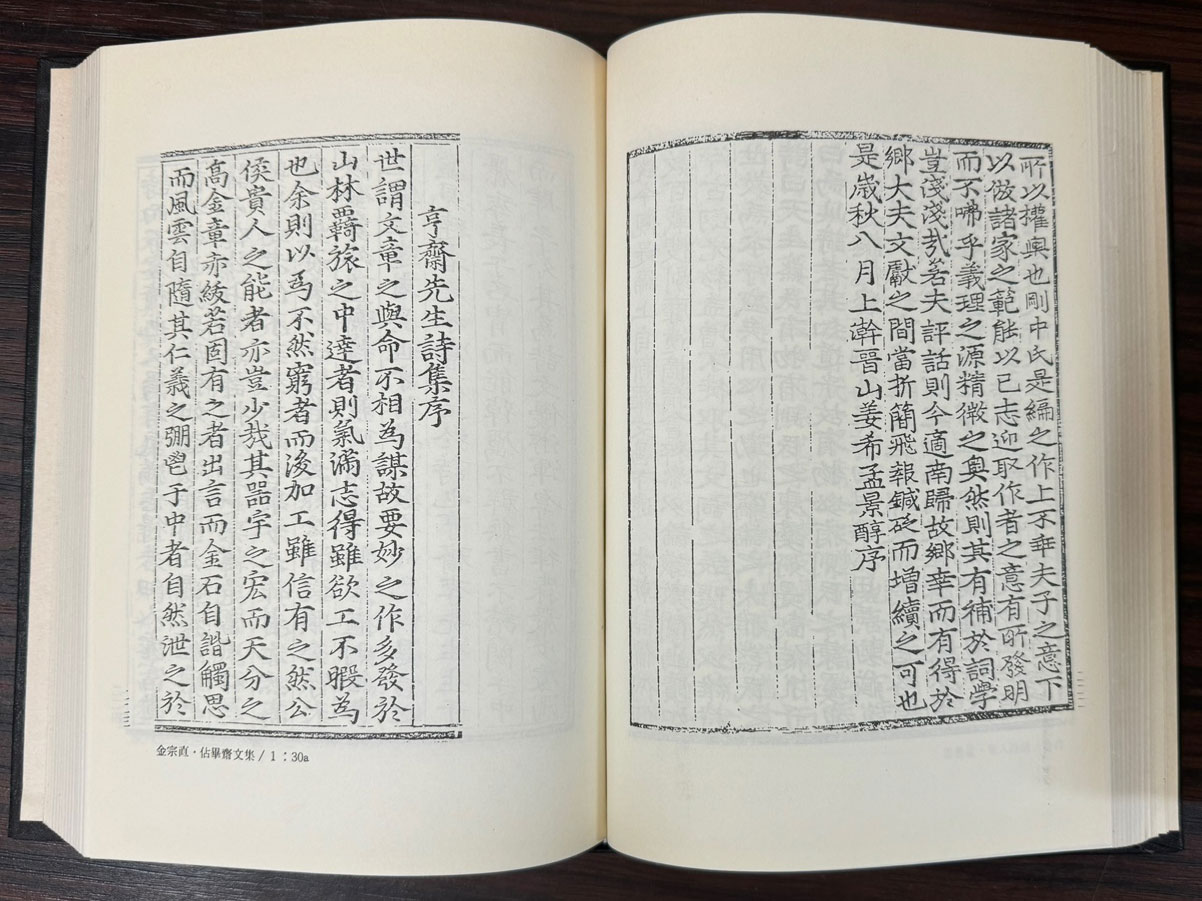 所以權輿也剛中氏是編之作上不幸夫子之意下
以倣諸家之範能以已志迎取作者之意有所發明
而不咈乎義理之源精微之奧然則其有補於詞學
豈淺淺哉若夫評話則今適南歸故鄉幸而有得於
鄉大夫文獻之間當折簡飛報鍼砭而增續之可也
是歲秋八月上澣晉山姜希孟景醇序
亨齋先生詩集序
世謂文章之與命不相為謀故要妙之作多發於
山林羇旅之中達者則氣滿志得雖欲工不暇為
也余則以爲不然窮者而後加工雖信有之然公
侯貴人之能者亦豈少哉其器宇之宏而天分之
高金章赤紱若固有之者出言而金石自諧觸思
而風雲自隨其仁義之弸鬯于中者自然泄之於
金宗直·佔畢齋文集 / 1 : 30a